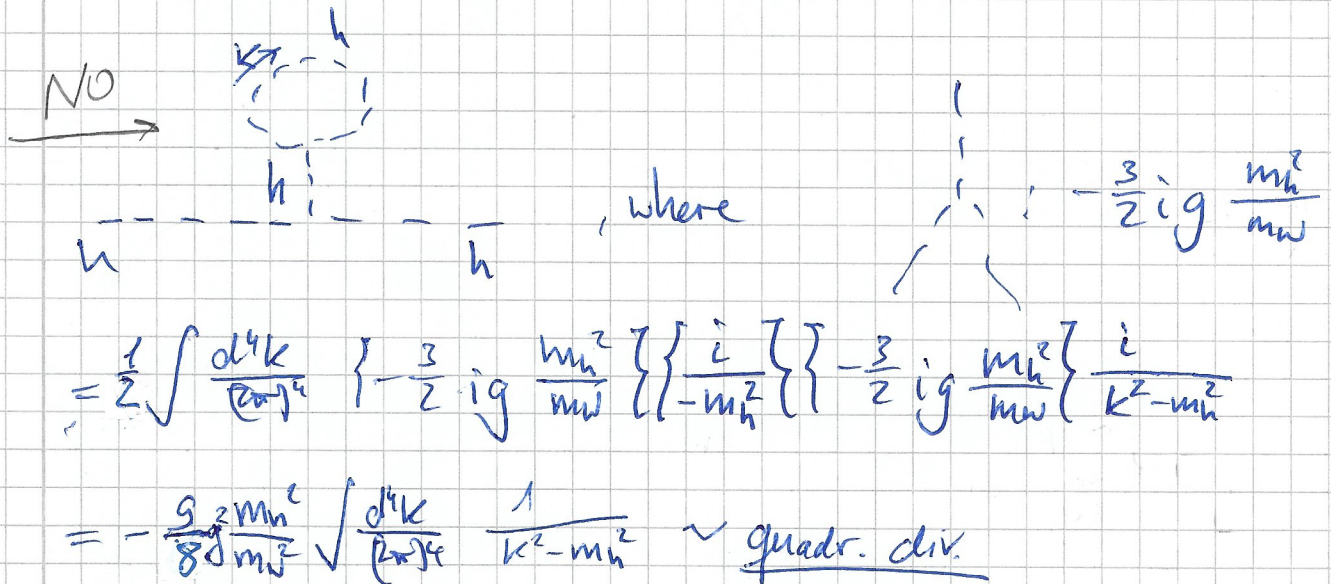 NO
k h
h
h h , where : - 3/2 i g m_h^2/m_W
= 1/2 ∫ d^4k/(2π)^4 { - 3/2 i g m_h^2/m_W } { i/-m_h^2 } { - 3/2 i g m_h^2/m_W } i/k^2-m_h^2
= - 9/8 g^2 m_h^2/m_W^2 ∫ d^4k/(2π)^4 1/k^2-m_h^2 ~ quadr. div.